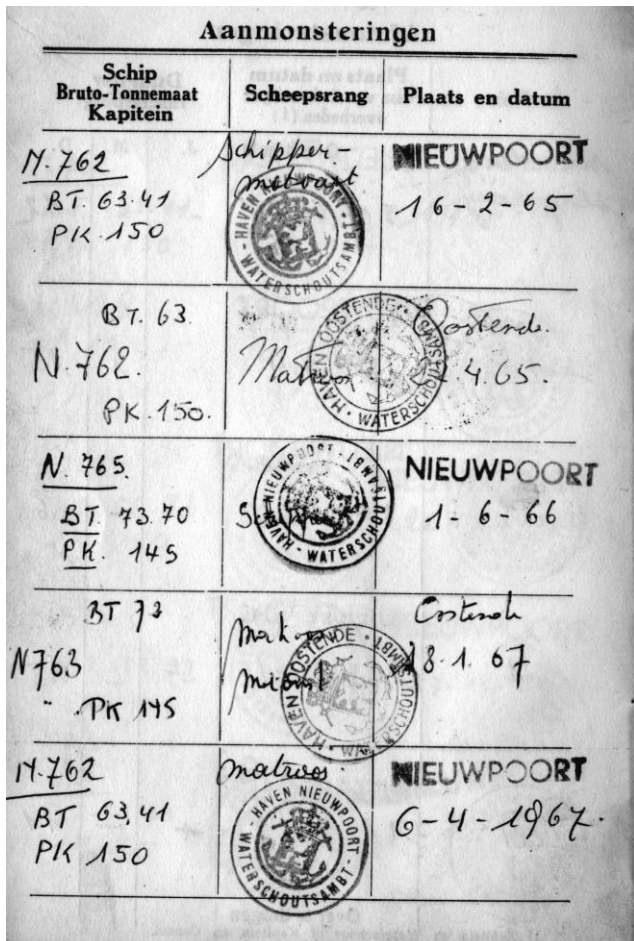 Aanmonsteringen
Schip
Bruto-Tonnemaat
Kapitein
Scheepsrang
Plaats en datum
N.762
BT. 63.41
PK. 150
Schipper-
HAVEN NIEUWPOORT - WATERSCHOUTSAMBT -
NIEUWPOORT
16-2-65
BT. 63.
N.762.
PK.150.
Matroos
HAVEN OOSTENDE · WATERSCHOUTSAMBT ·
Oostende.
4.65.
N. 765.
BT. 73.70
PK. 145
Schipper
HAVEN NIEUWPOORT - WATERSCHOUTSAMBT -
NIEUWPOORT
1-6-66
BT 73
N763
" PK 145
Matroos
HAVEN OOSTENDE · WATERSCHOUTSAMBT ·
Oostende
18.1.67
N.762
BT 63,41
PK 150
matroos.
HAVEN NIEUWPOORT - WATERSCHOUTSAMBT -
NIEUWPOORT
6-4-1967.